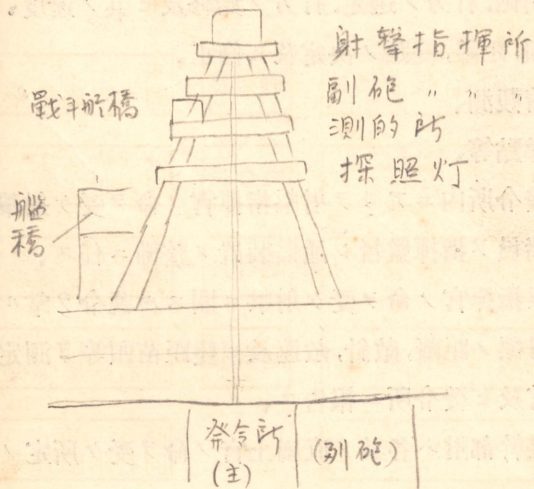 射撃指揮所
副砲 〃 〃 〃
測的所
探照灯
戦斗艦橋
艦橋
発令所
(主)
(副砲)